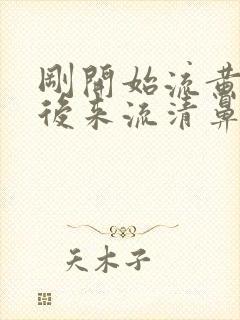 剛開始流黃
後來流清鼻
天木子